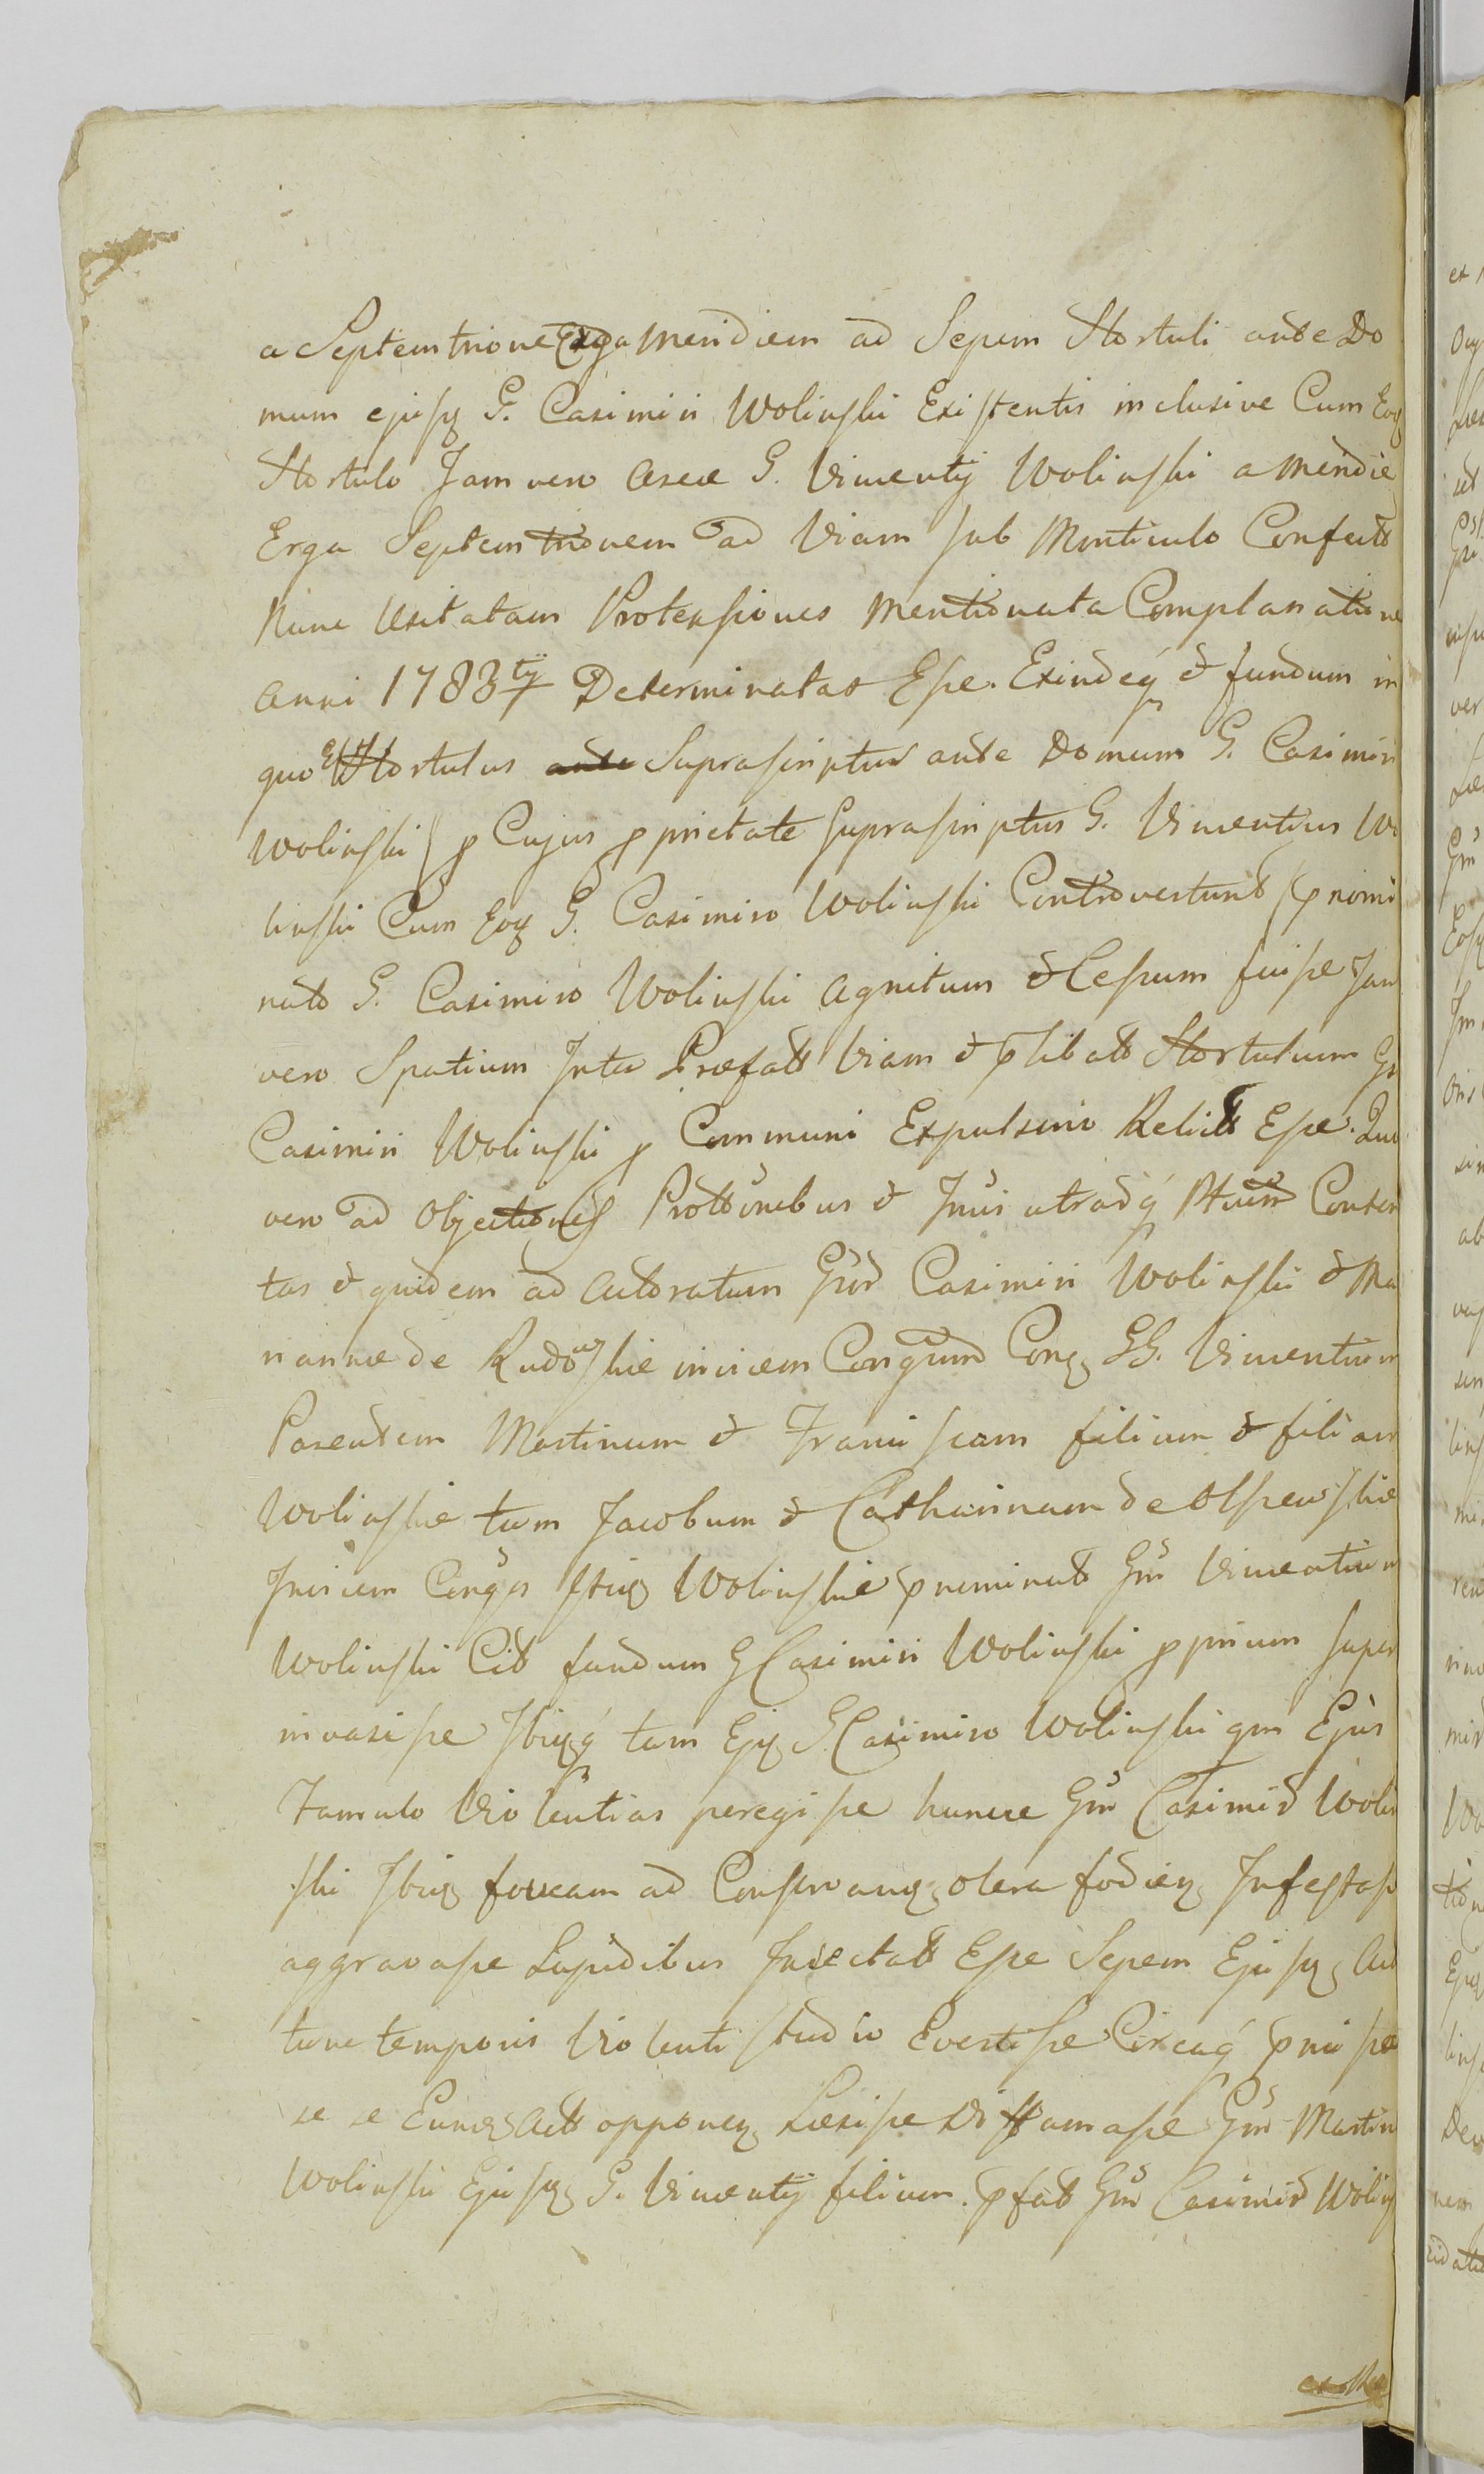 a Septemtrione Erga Meridiem ad Sepem Hortuli ante Do
mum ejusq G. Casimiri Wolinski Existentis inclusive Cum Eoq
Hortulo Jam vero Areæ G. Vincentij Wolinski a Meridie
Erga Septemtrionem ad Viam sub Monticulo Confect
Nunc Usitatam Protensiones Mentionata Complanatione
Anni 1783tÿ Determinatas Esse. Exindeq́ et fundum in
quo est Hortulus ante Suprascriptus ante Domum G. Casimiri
Wolinski / p Cujus pprietate Suprascriptus G. Vincentius Wo
linski Cum Eoq G. Casimiro Wolinski Controvertunt / p nomi
nato G. Casimiro Wolinski Agnitum et Cessum fuisse Jam
vero Spatium Inter Præfatt Viam et plibatt Hortulum G
Casimiri Wolinski p Communi Expulsorio Relictt Esse. Qu
vero ad Objectiones Prottonibus et Jnūs utradq́ Conten
tas et quidem ad Actoratum Gnōr Casimiri Wolinski et Ma
riannæ de Rudowskie invicem Congum Conq GG. Vincentium
Parentem Martinum et Franciscam filium et filiam
Wolinskie tum Jacobum et Catharinam de Olszewskie
Invicem Conges Wolinskie pnominat Gnm Vincentium
Wolinski Cit fundum G Casimiri Wolinski pprium super
invasisse Ibiqq́ tam Ejq G Casimiro Wolinski qm Ejus
Famulo Violentias peregisse huncce Gnm Casimir Wolin
ski Ibiq foveam ad Conservanq olera fodienq Infestass
aggravasse Lapidibus Injectatt Esse Sepem Ejusq Act
tunc temporis Violenti studio Evertisse Circaq́
se se Eumq Actt opponenq Læsisse Diffamasse Gnm Martin
Wolinski Ejusq G. Vincentij filium. pfat Gnm Casimir Wolin